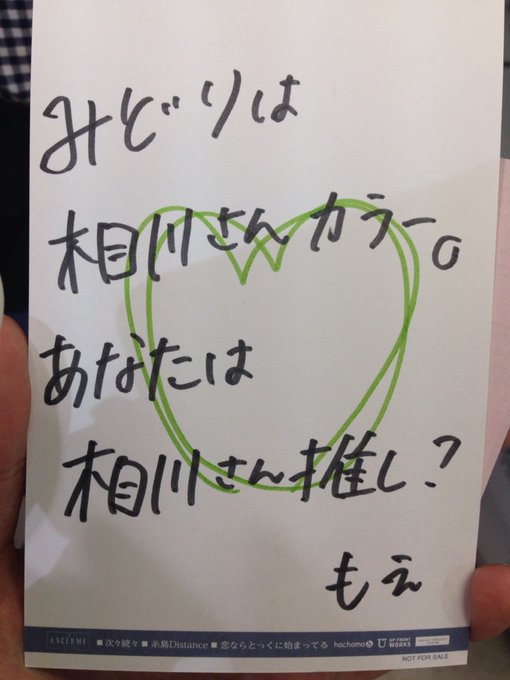 みどりは
相川さんカラー。
あなたは
相川さん推し?
もえ
ANGERME ■ 次々続々 ■ 糸島Distance ■ 恋ならとっくに始まってる hachama UP-FRONT WORKS
NOT FOR SALE